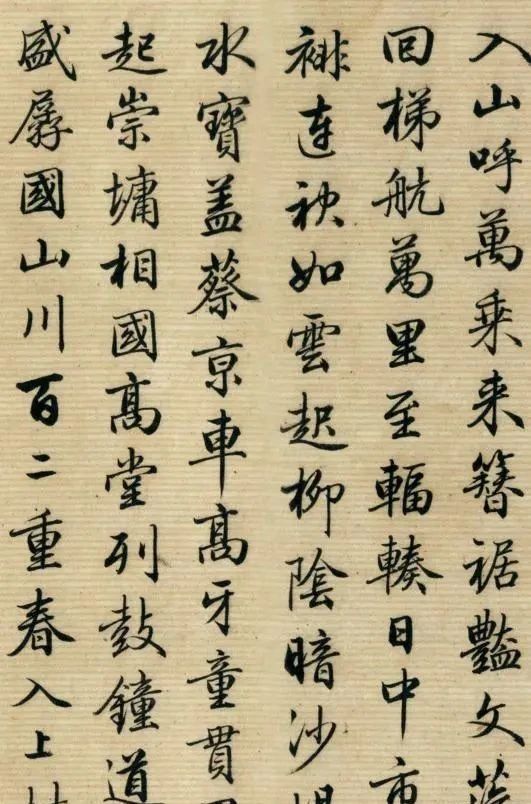 入山呼萬乗来簪裾豔文
回梯航萬里至輻輳日中市
連袂如雲起柳陰暗沙
水寶盖蔡京車髙牙童貫
起崇墉相國髙堂列鼓鐘道
盛國山川百二重春入上